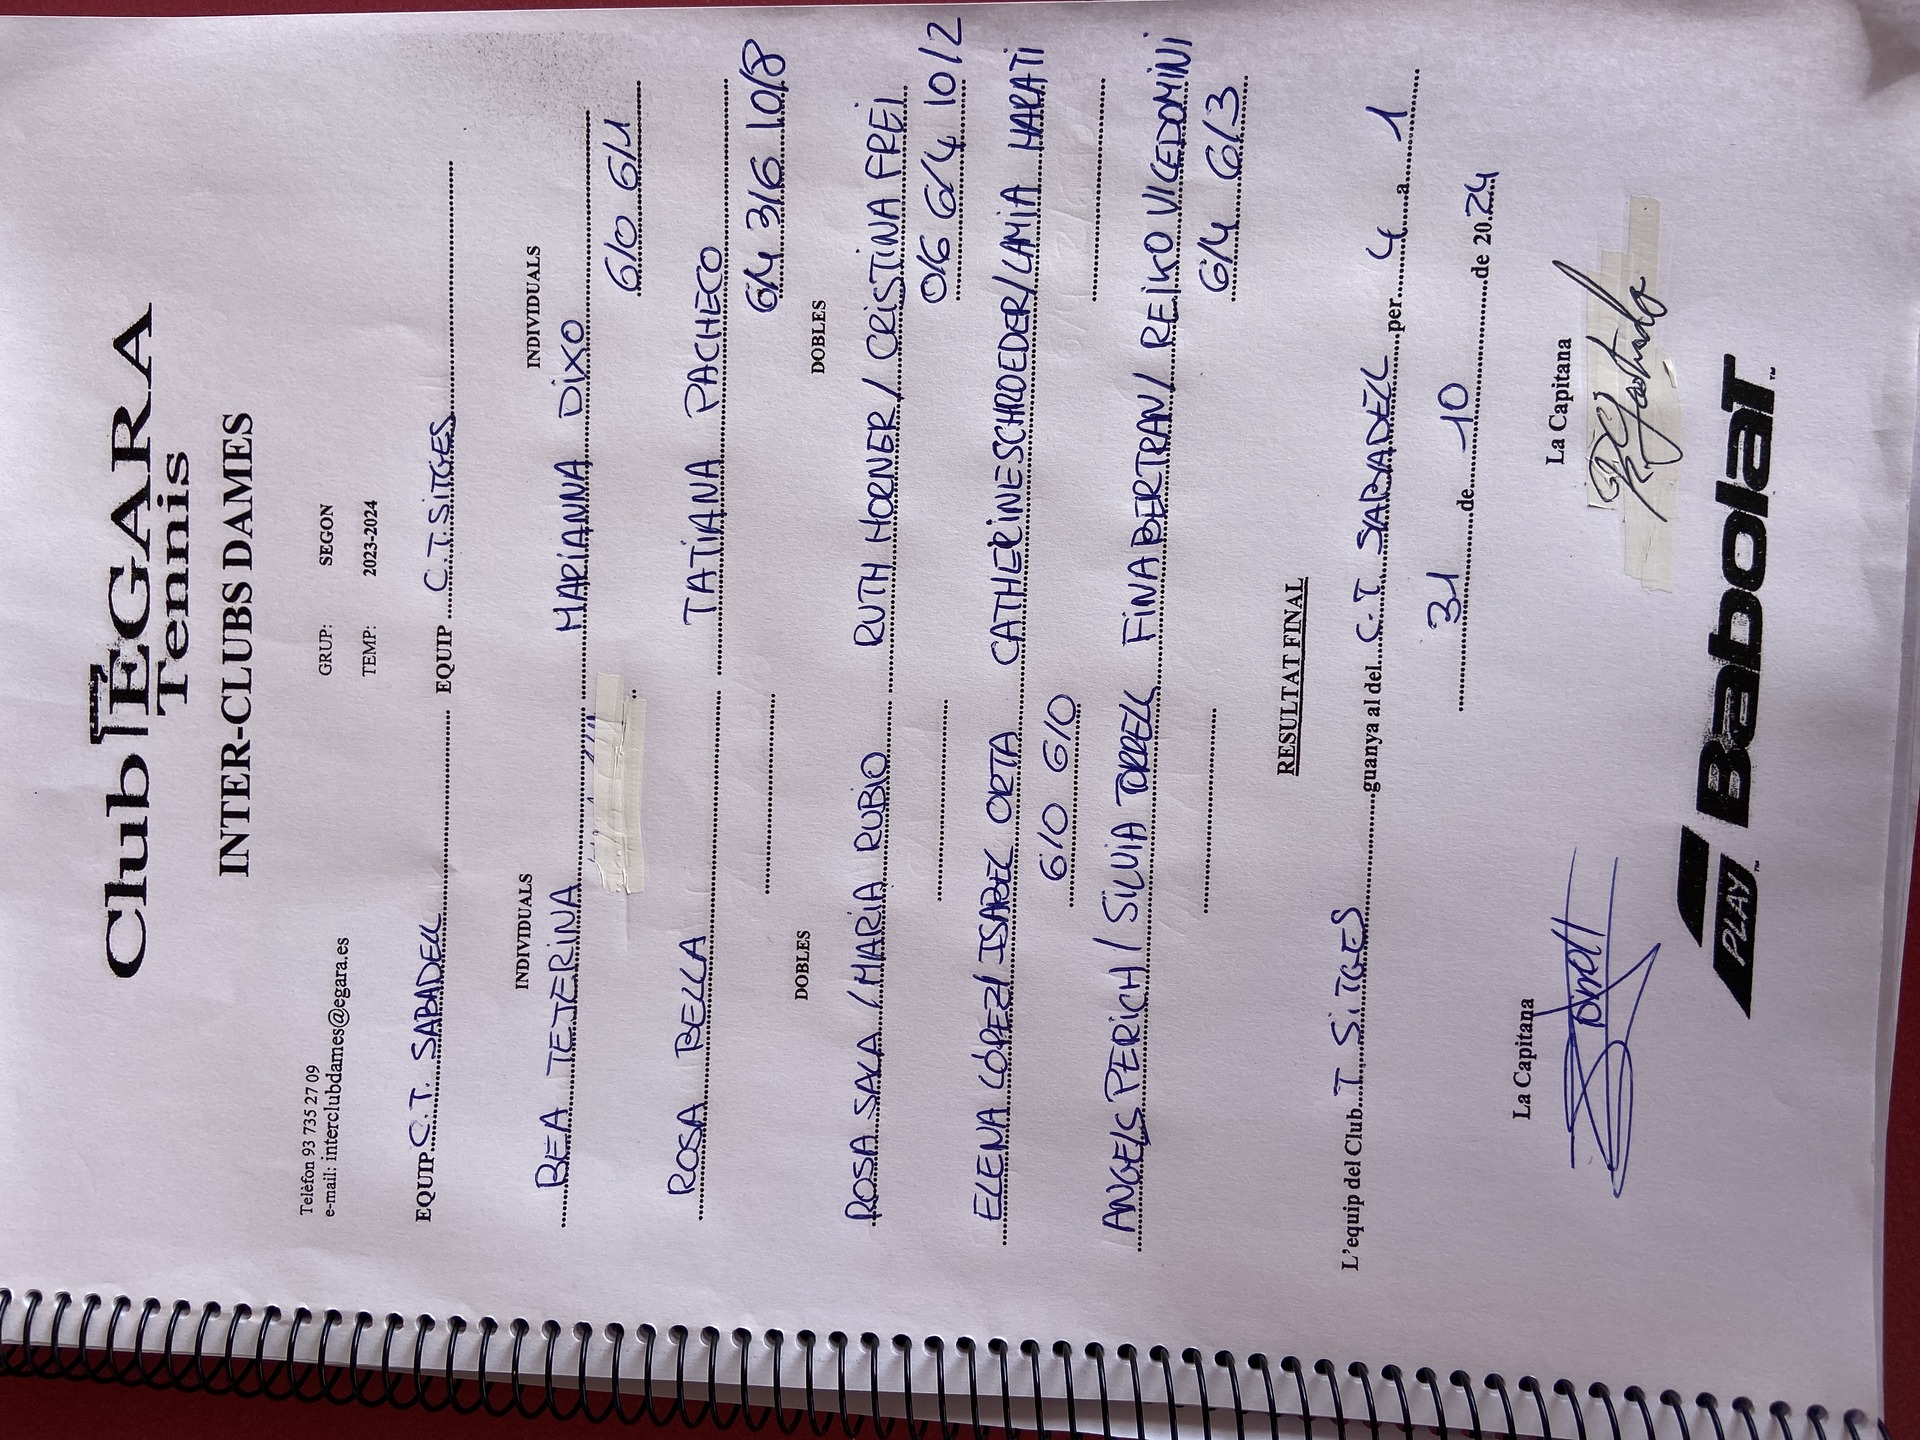 Club EGARA
Tennis
INTER-CLUBS DAMES
Telèfon 93 735 27 09
e-mail: interclubdames@egara.es
GRUP: SEGON
TEMP: 2023-2024
EQUIP C.T. SABADELL EQUIP C.T. SITGES
INDIVIDUALS INDIVIDUALS
BEA TEJERINA MARIANNA DIXO
6/0 6/1
ROSA BELLA TATIANA PACHECO
6/4 3/6 10/8
DOBLES DOBLES
ROSA SALA / MARIA RUBIO RUTH HORNER / CRISTINA FREI
0/6 6/4 10/2
ELENA LÓPEZ / ISABEL ORTA CATHERINE SCHROEDER / LAMIA HARATI
6/0 6/0
ANGELS PERICH / SILVIA TORRELL FINA BERTRAN / REIKO VICEDOMINI
6/4 6/3
RESULTAT FINAL
L'equip del Club T. SITGES guanya al del C.T. SABADELL per 4 a 1
31 de 10 de 2024
La Capitana La Capitana
PLAY Babolat